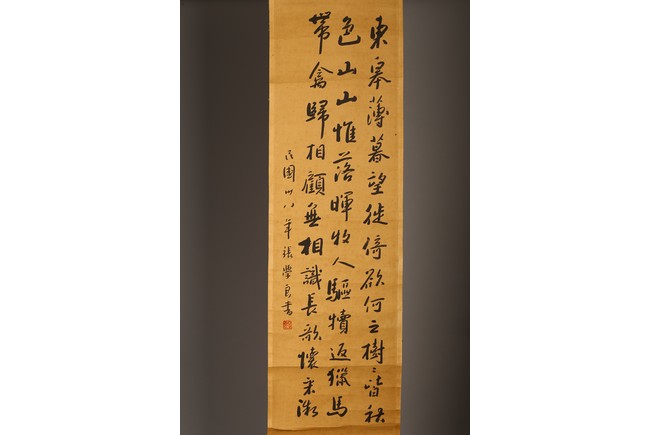 東皋薄暮望徙倚欲何之樹〻皆秋
色山山惟落暉牧人驅犢返獵馬
帶禽歸相顧無相識長歌懷采薇
民國卅八年張學良書